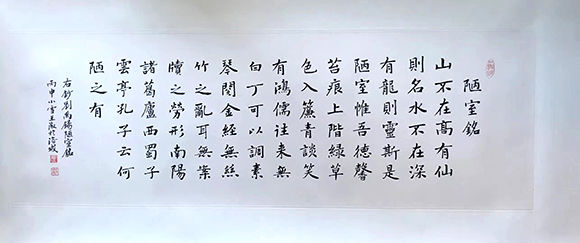 陋室銘
山不在高有仙
則名水不在深
有龍則靈斯是
陋室惟吾德馨
苔痕上階綠草
色入簾青談笑
有鴻儒往来無
白丁可以調素
琴閱金經無絲
竹之亂耳無案
牘之勞形南陽
諸葛廬西蜀子
雲亭孔子云何
陋之有
右鈔劉禹錫陋室銘
丙申小雪王